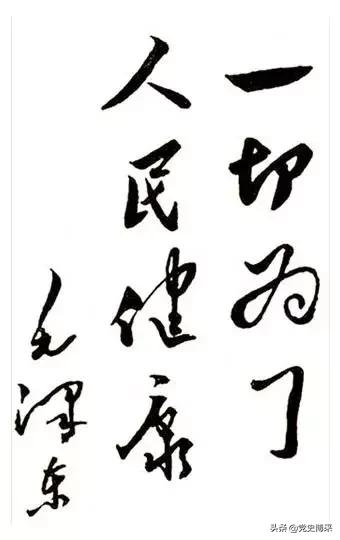 一切为了
人民健康
毛泽东
头条@党史博采